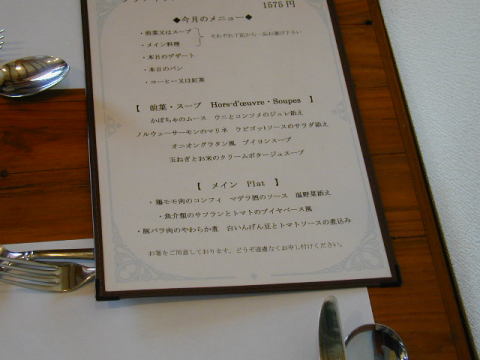 1575 円
◆今月のメニュー◆
・前菜又はスープ
・メイン料理
それぞれ下記から一品お選び下さい
・本日のデザート
・本日のパン
・コーヒー又は紅茶
【 前菜・スープ Hors-d'œuvre・Soupes 】
かぼちゃのムース ウニとコンソメのジュレ添え
ノルウェーサーモンのマリネ ラビゴットソースのサラダ添え
オニオングラタン風 ブイヨンスープ
玉ねぎとお米のクリームポタージュスープ
【 メイン Plat 】
・鶏モモ肉のコンフィ マデラ酒のソース 温野菜添え
・魚介類のサフランとトマトのブイヤベース風
・豚バラ肉のやわらか煮 白いんげん豆とトマトソースの煮込み
お箸をご用意しております。どうぞ遠慮なくお申し付けください。